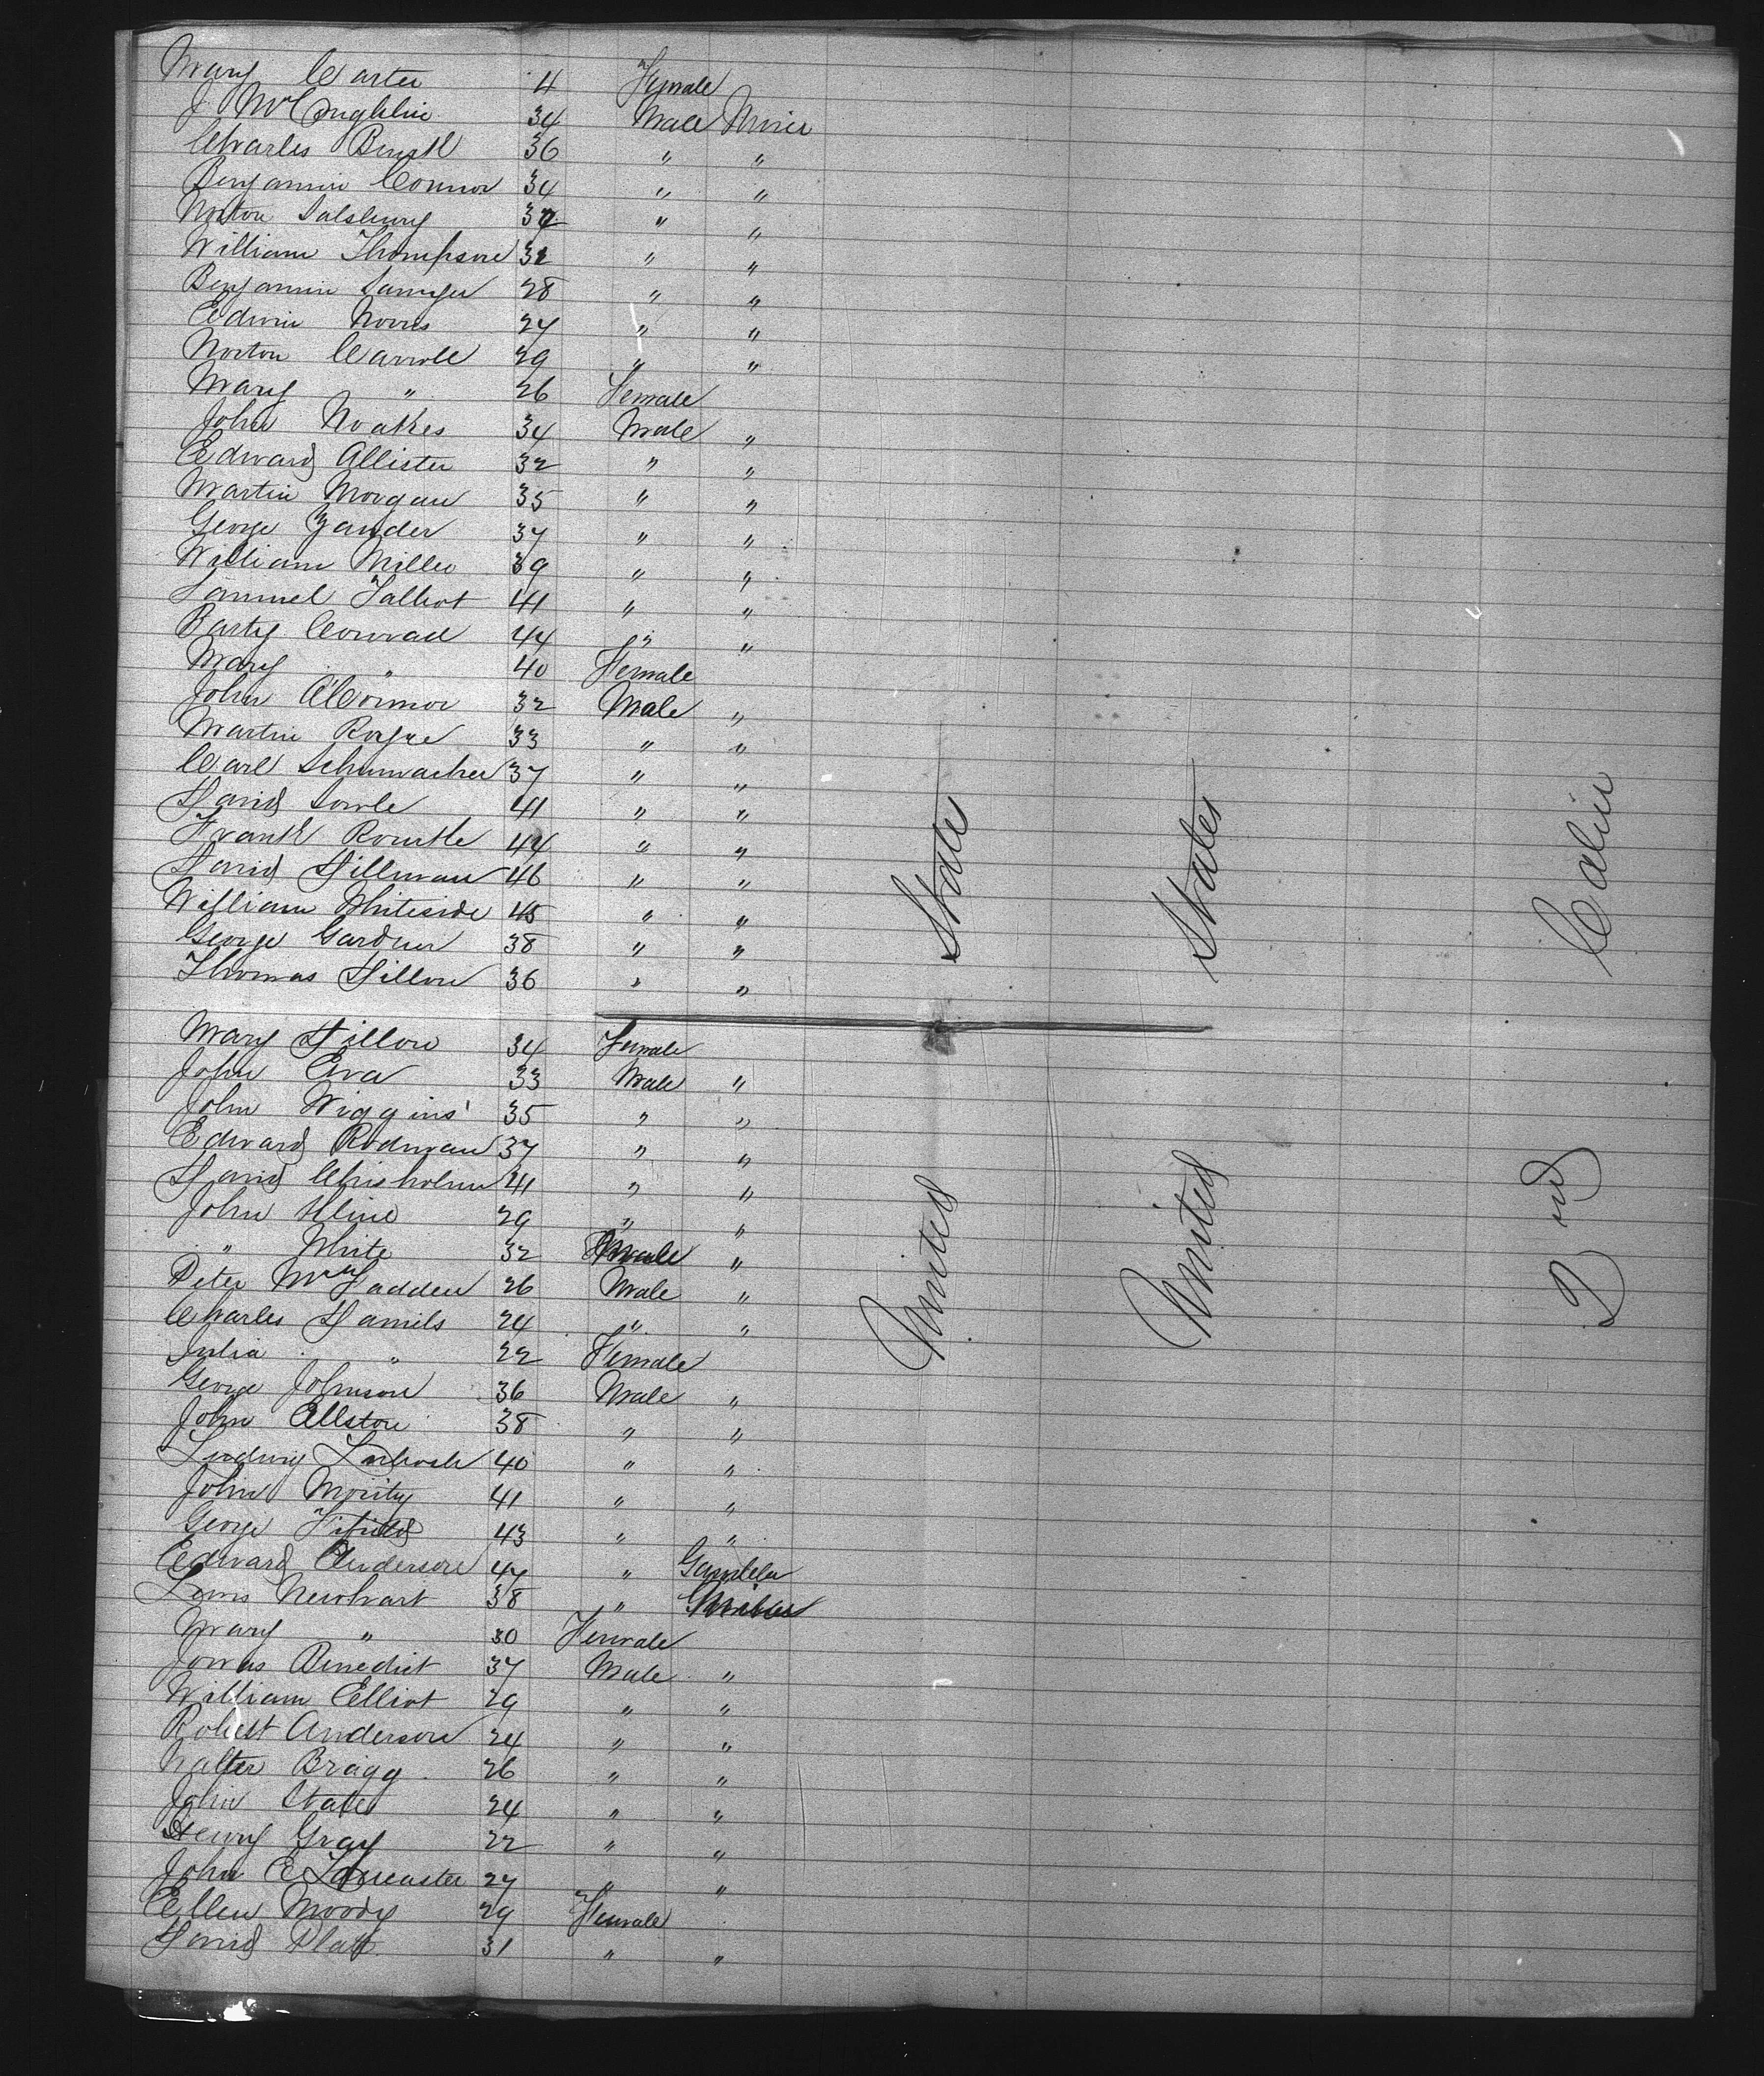 Mary Carter 4 Female
J. McCoughlin 34 Male Miner
Charles 36 " "
Benjamin Connor 34 " "
Norton Salsbury 32 " "
William Thompson 32 " "
Benjamin 28 " "
Edwin Norris 27 " "
Norton Carrole 29 " "
Mary " 26 Female
John Noakes 34 Male "
Edward Allister 32 " "
Martin Morgan 35 " "
George Zander 37 " "
William Miller 39 " "
Samuel Talbot 41 " "
Barty Conrad 44 " "
Mary " 40 Female
John O'Connor 32 Male "
Martin 33 " "
Carl Schumacher 37 " "
David Sowle 41 " "
Frank 44 " "
David Dillman 46 " "
William Whiteside 45 " "
George Gardner 38 " "
Thomas Dillon 36 " "
Mary Dillon 34 Female
John 33 Male "
John Wiggins 35 " "
Edward Rodman 37 " "
David Chisholm 41 " "
John Kline 29 " "
" White 32 Male "
Peter McFadden 26 Male "
Charles Daniels 24 " "
Julia " 22 Female
George Johnson 36 Male "
John Ellston 38 " "
Ludwig 40 " "
John Mority 41 " "
George Fifield 43 " "
Edward Anderson 47 " Gambler
Louis Newhart 38 "
Mary " 30 Female
Jonas Benedict 37 Male "
William Elliot 29 " "
Robert Anderson 24 " "
Walter Bragg 26 " "
John State 24 " "
Henry Gray 22 " "
John E Lancaster 27 " "
Ellen Moody 29 Female
David Platt 31 " "
United States
United States
Cabin